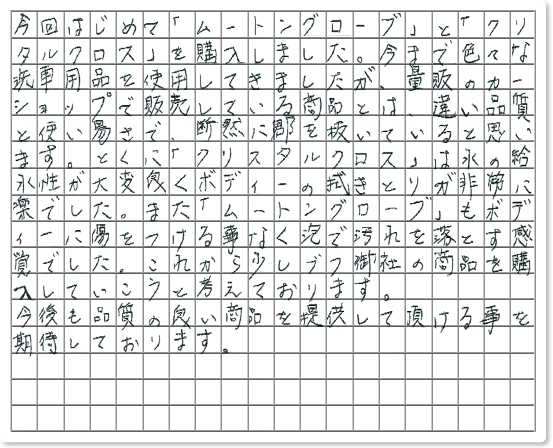 今回はじめて「ムートングローブ」と「クリ
タルクロス」を購入しました。今まで色々な
洗車用品を使用してきましたが、量販のカー
ショップで販売している商品とは、違い品質
と使い易さで、断然に郡を抜いていると思い
ます。とくに「クリスタルクロス」は水の給
水性が大変良くボディーの拭きとりが非常に
楽でした。また「ムートングローブ」もボデ
ィーに傷をつける事なく泡で汚れを落とす感
覚でした。これから少しづつ御社の商品を購
入していこうと考えております。
今後も品質の良い商品を提供して頂ける事を
期待しております。